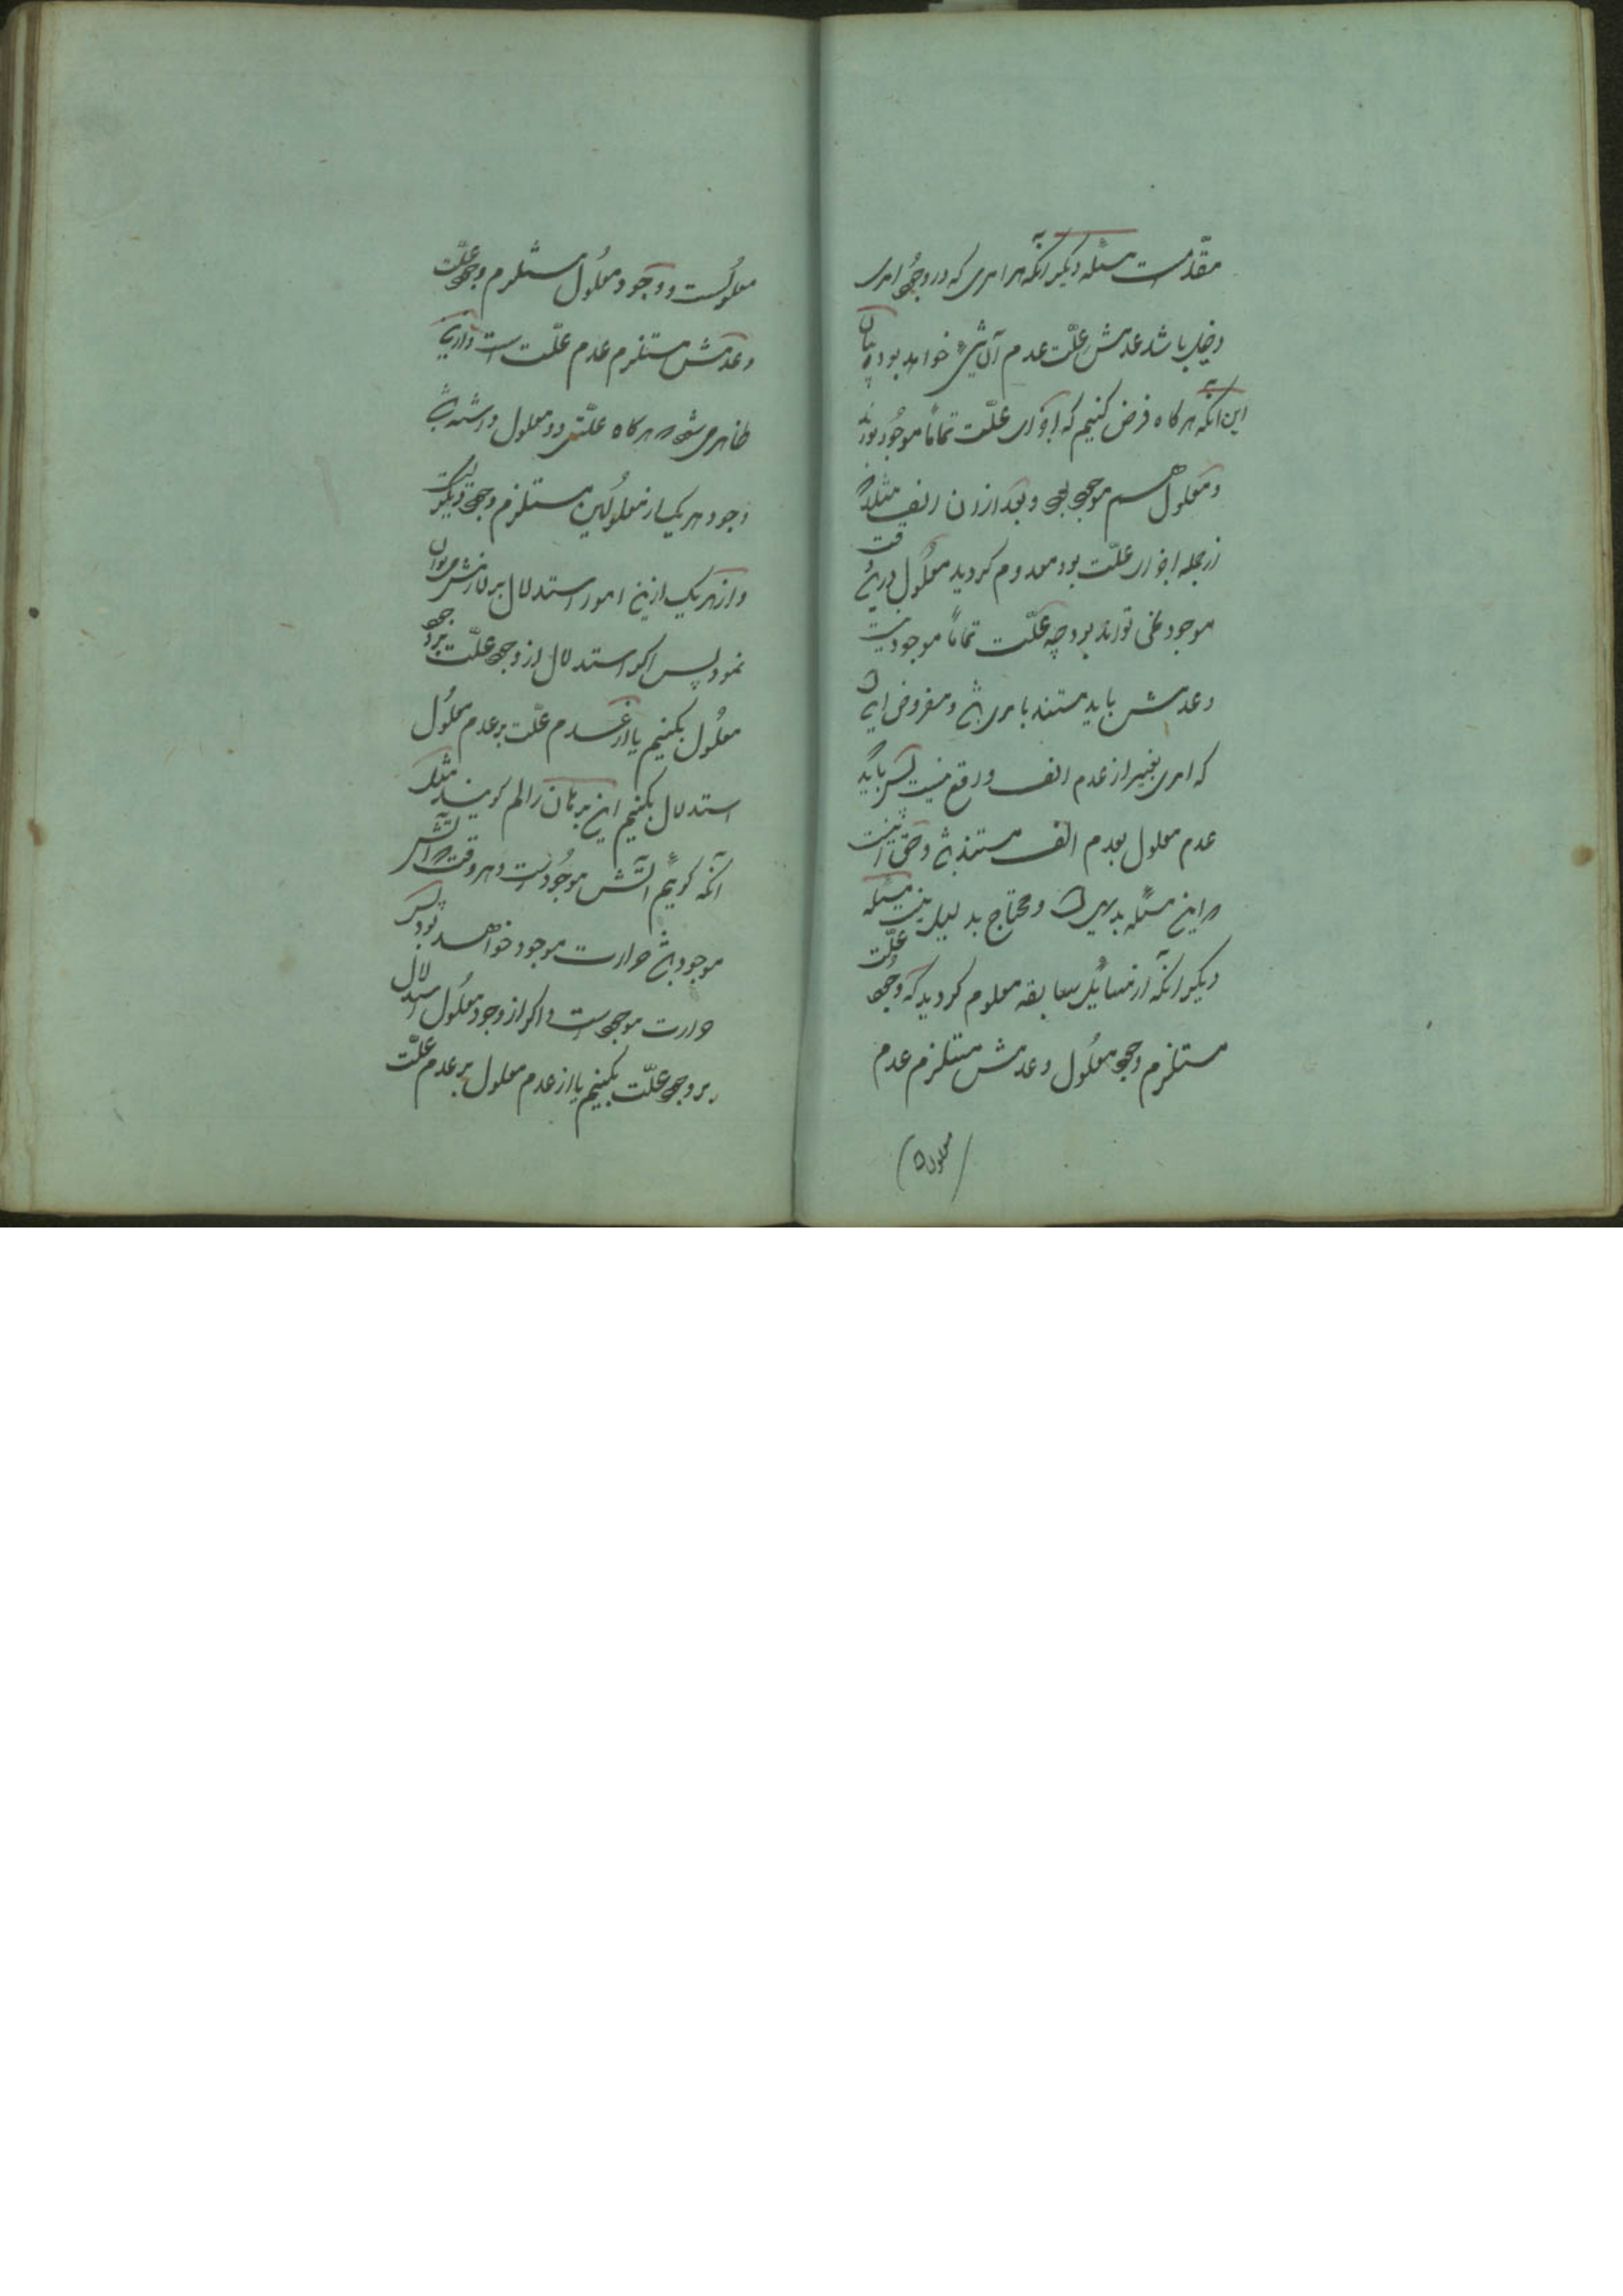 مقدّمست مسئله دیکر آنکه هر امری که در وجود امری
دخیل باشد عدمش علّت عدم آن شیء خواهد بود بیان
این آنکه هر کاه فرض کنیم که اجزای علّت تماماً موجود بودند
و معلول هم موجود بود و بعد از آن الف مثلا که
از جمله اجزای علّت بود معدوم کردید معلول درین وقت
موجود نمی تواند بود چه علّت تماماً موجود نیست
و عدمش باید مستند بامری باشد و مفروض این است
که امری بغیر از عدم الف واقع نیست پس باید
عدم معلول بعدم الف مستند باشد و حق آنست
که این مسئله بدیهی است و محتاج بدلیل نیست مسئله
دیکر آنکه از مسایل سابقه معلوم کردید که وجود علّت
مستلزم وجود معلول و عدمش مستلزم عدم
معلولست
معلولست و وجود معلول مستلزم وجود علّت
و عدمش مستلزم عدم علّت است و ازین
ظاهر می شود که هر کاه علّتی دو معلول داشته باشد
وجود هر یک از معلولین مستلزم وجود دیکریست
و از هر یک ازین امور استدلال بر لازمش می توان
نمود پس اکر استدلال از وجود علّت بر وجود
معلول بکنیم یا از عدم علّت بر عدم معلول
استدلال بکنیم این برهان را لم کویند مثل
آنکه کوئیم آتش موجود است و هر وقت که آتش
موجود باشد حرارت موجود خواهد بود پس
حرارت موجود است و اکر از وجود معلول استدلال
بر وجود علّت بکنیم یا از عدم معلول بر عدم علّت